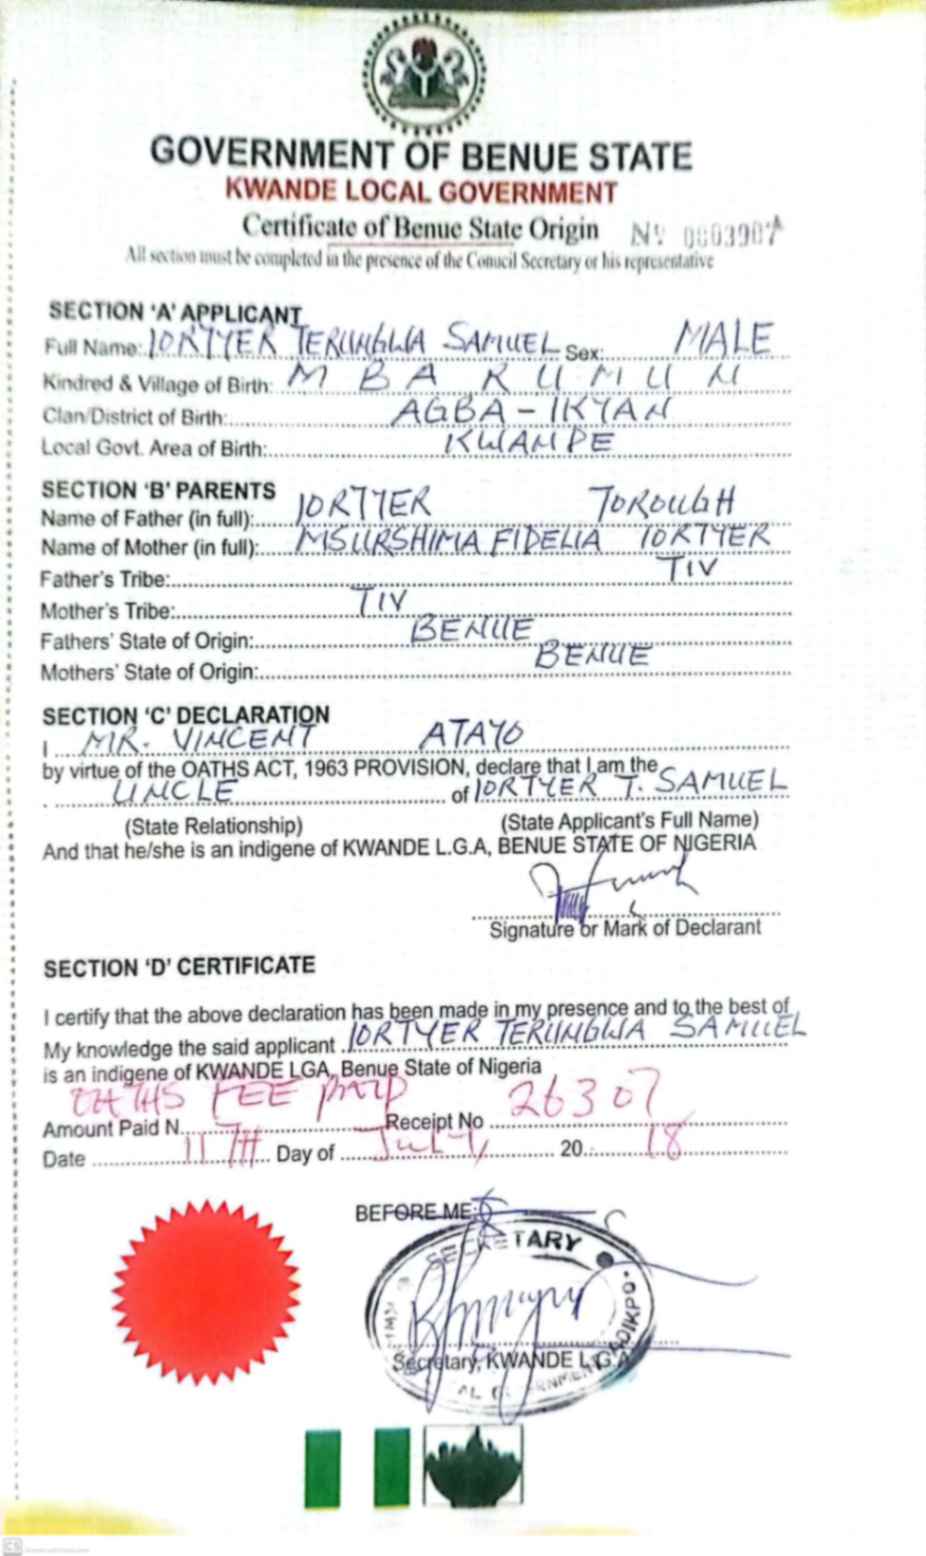 GOVERNMENT OF BENUE STATE
KWANDE LOCAL GOVERNMENT
Certificate of Benue State Origin Nº 0003907
All section must be completed in the presence of the Conucil Secretary or his representative
SECTION 'A' APPLICANT
Full Name: IORTYER TERUNGWA SAMUEL Sex: MALE
Kindred & Village of Birth: MBAKUMUN
Clan/District of Birth: AGBA - IKYAN
Local Govt. Area of Birth: KWANDE
SECTION 'B' PARENTS
Name of Father (in full): IORTYER TOROUGH
Name of Mother (in full): MSURSHIMA FIDELIA IORTYER
Father's Tribe: TIV
Mother's Tribe: TIV
Fathers' State of Origin: BENUE
Mothers' State of Origin: BENUE
SECTION 'C' DECLARATION
I MR. VINCENT ATAYO
by virtue of the OATHS ACT, 1963 PROVISION, declare that I am the
UNCLE of IORTYER T. SAMUEL
(State Relationship) (State Applicant's Full Name)
And that he/she is an indigene of KWANDE L.G.A, BENUE STATE OF NIGERIA
Signature or Mark of Declarant
SECTION 'D' CERTIFICATE
I certify that the above declaration has been made in my presence and to the best of
My knowledge the said applicant IORTYER TERUNGWA SAMUEL
is an indigene of KWANDE LGA, Benue State of Nigeria
OATHS FEE PAID 26307
Amount Paid N Receipt No
Date 11TH Day of July, 20 18
BEFORE ME:
SECRETARY
ADIKPO
Secretary, KWANDE L.G.A
CS